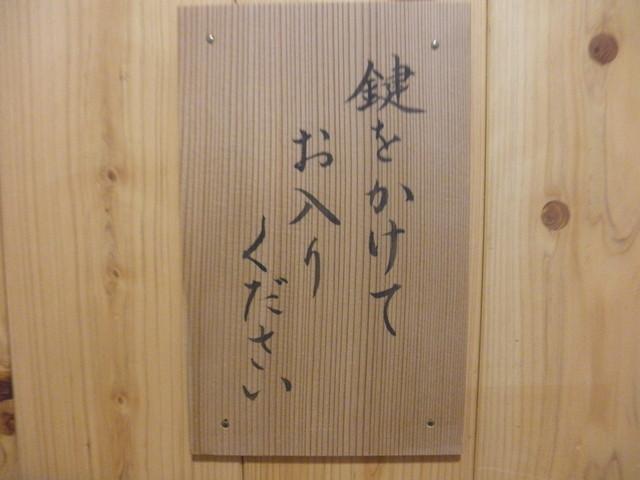 鍵をかけて
お入り
ください